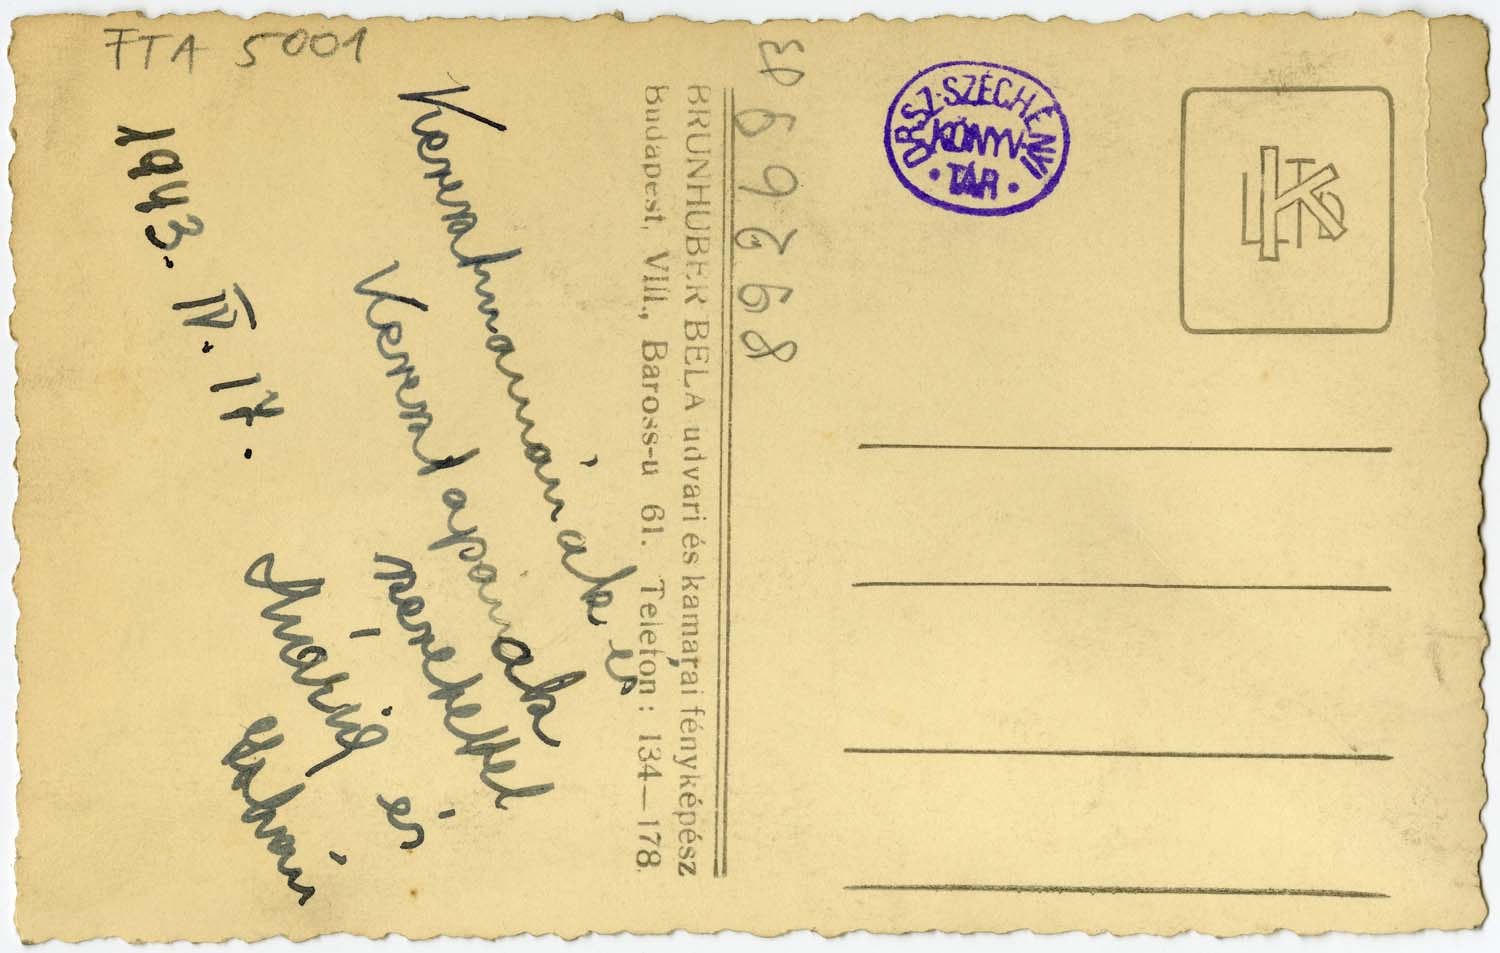 FTA 5001
Keresztmamának és
Keresztapának
szeretettel
Mária és
István
1943. IV. 17.
BRUNHUBER BÉLA udvari és kamarai fényképész
Budapest, VIII., Baross-u 61. Telefon: 134—178.
ORSZ. SZÉCHÉNYI
KÖNYV-
TÁR